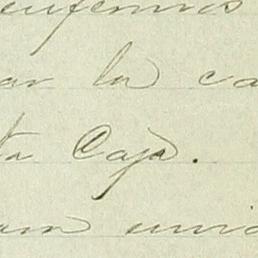 enfermos
ar la ca
ta Caja.
am unid